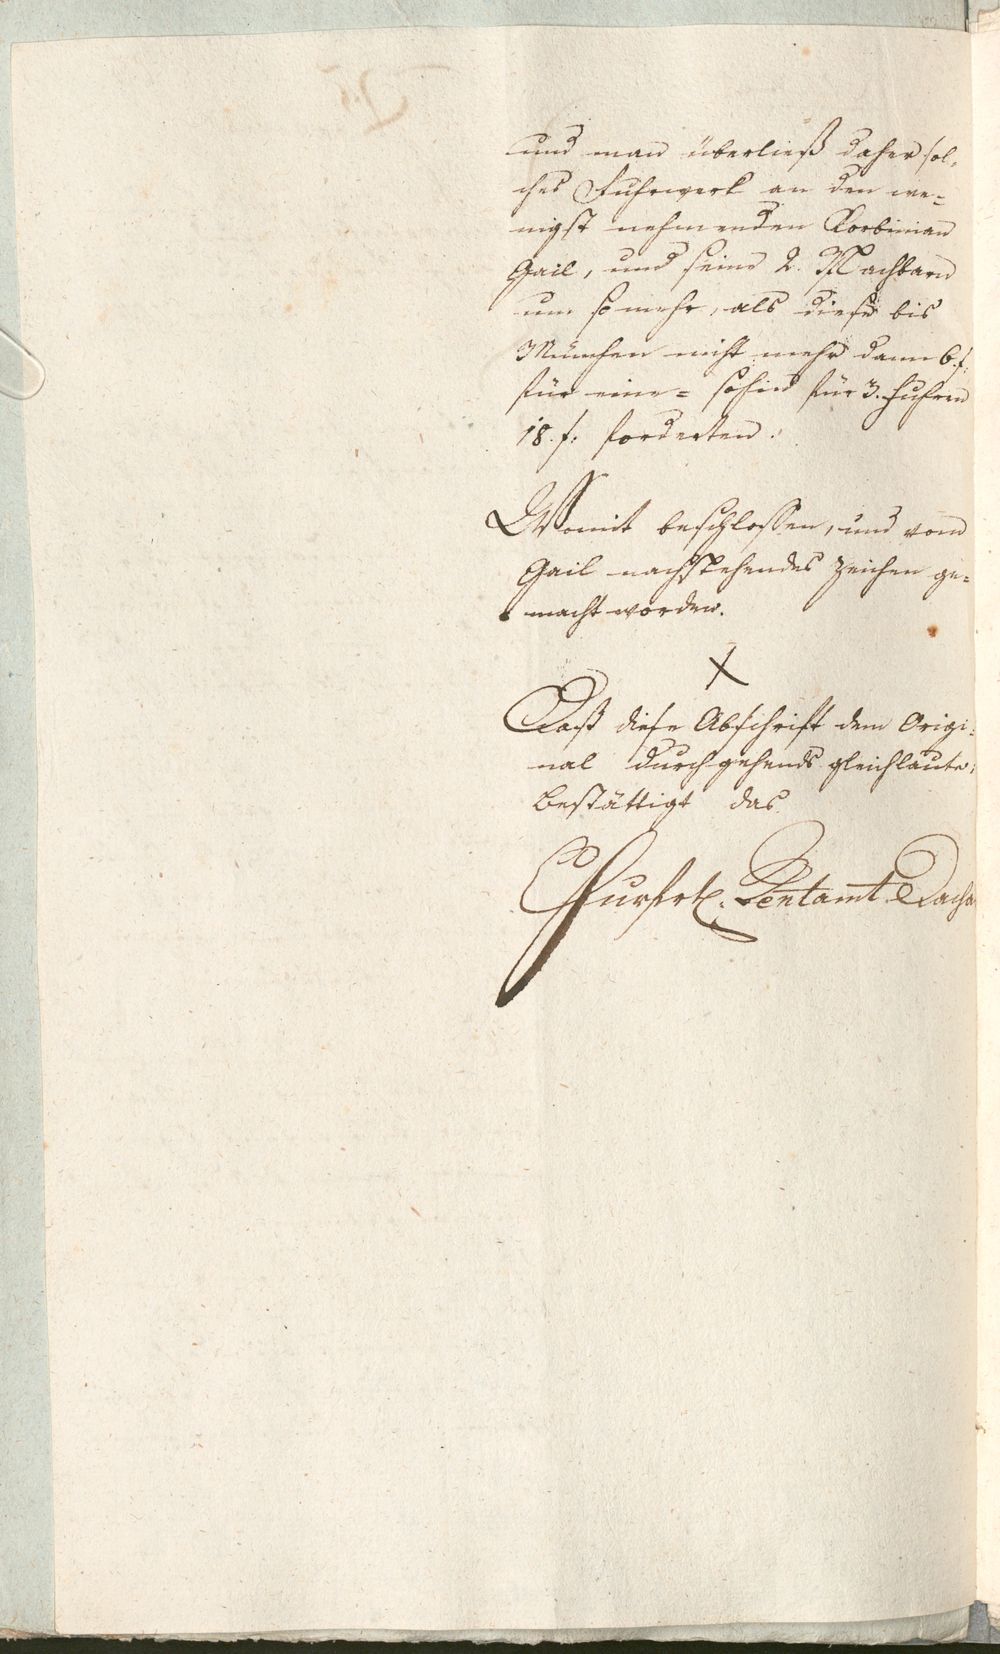 und man überließ daher sol-
ches Fuhrwerk an den we-
nigst nehmenden Korbinian
Gail, und seine 2. Nachbarn
um so mehr, als diese bis
München nicht mehr dann 6. f.
für eine = sohin für 3. Fuhren
18. f. forderten.
Womit beschlossen, und vom
Gail nachstehendes Zeichen ge-
macht worden.
X
Daß diese Abschrift dem Origi-
nal durchgehends gleichlaute,
bestättigt das
Churfrtl. Rentamt Dacha